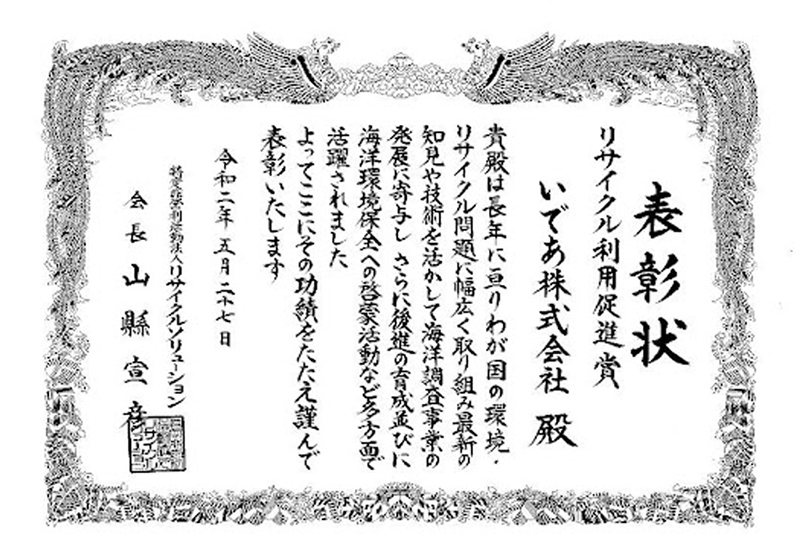 表彰状
リサイクル利用促進賞
いであ株式会社 殿
貴殿は長年に亘りわが国の環境・
リサイクル問題に幅広く取り組み最新の
知見や技術を活かして海洋調査事業の
発展に寄与し さらに後進の育成並びに
海洋環境保全への啓蒙活動など多方面で
活躍されました
よってここにその功績をたたえ謹んで
表彰いたします
令和二年 五月 二十七日
特定非営利活動法人リサイクルソリューション
会長 山縣宣彦